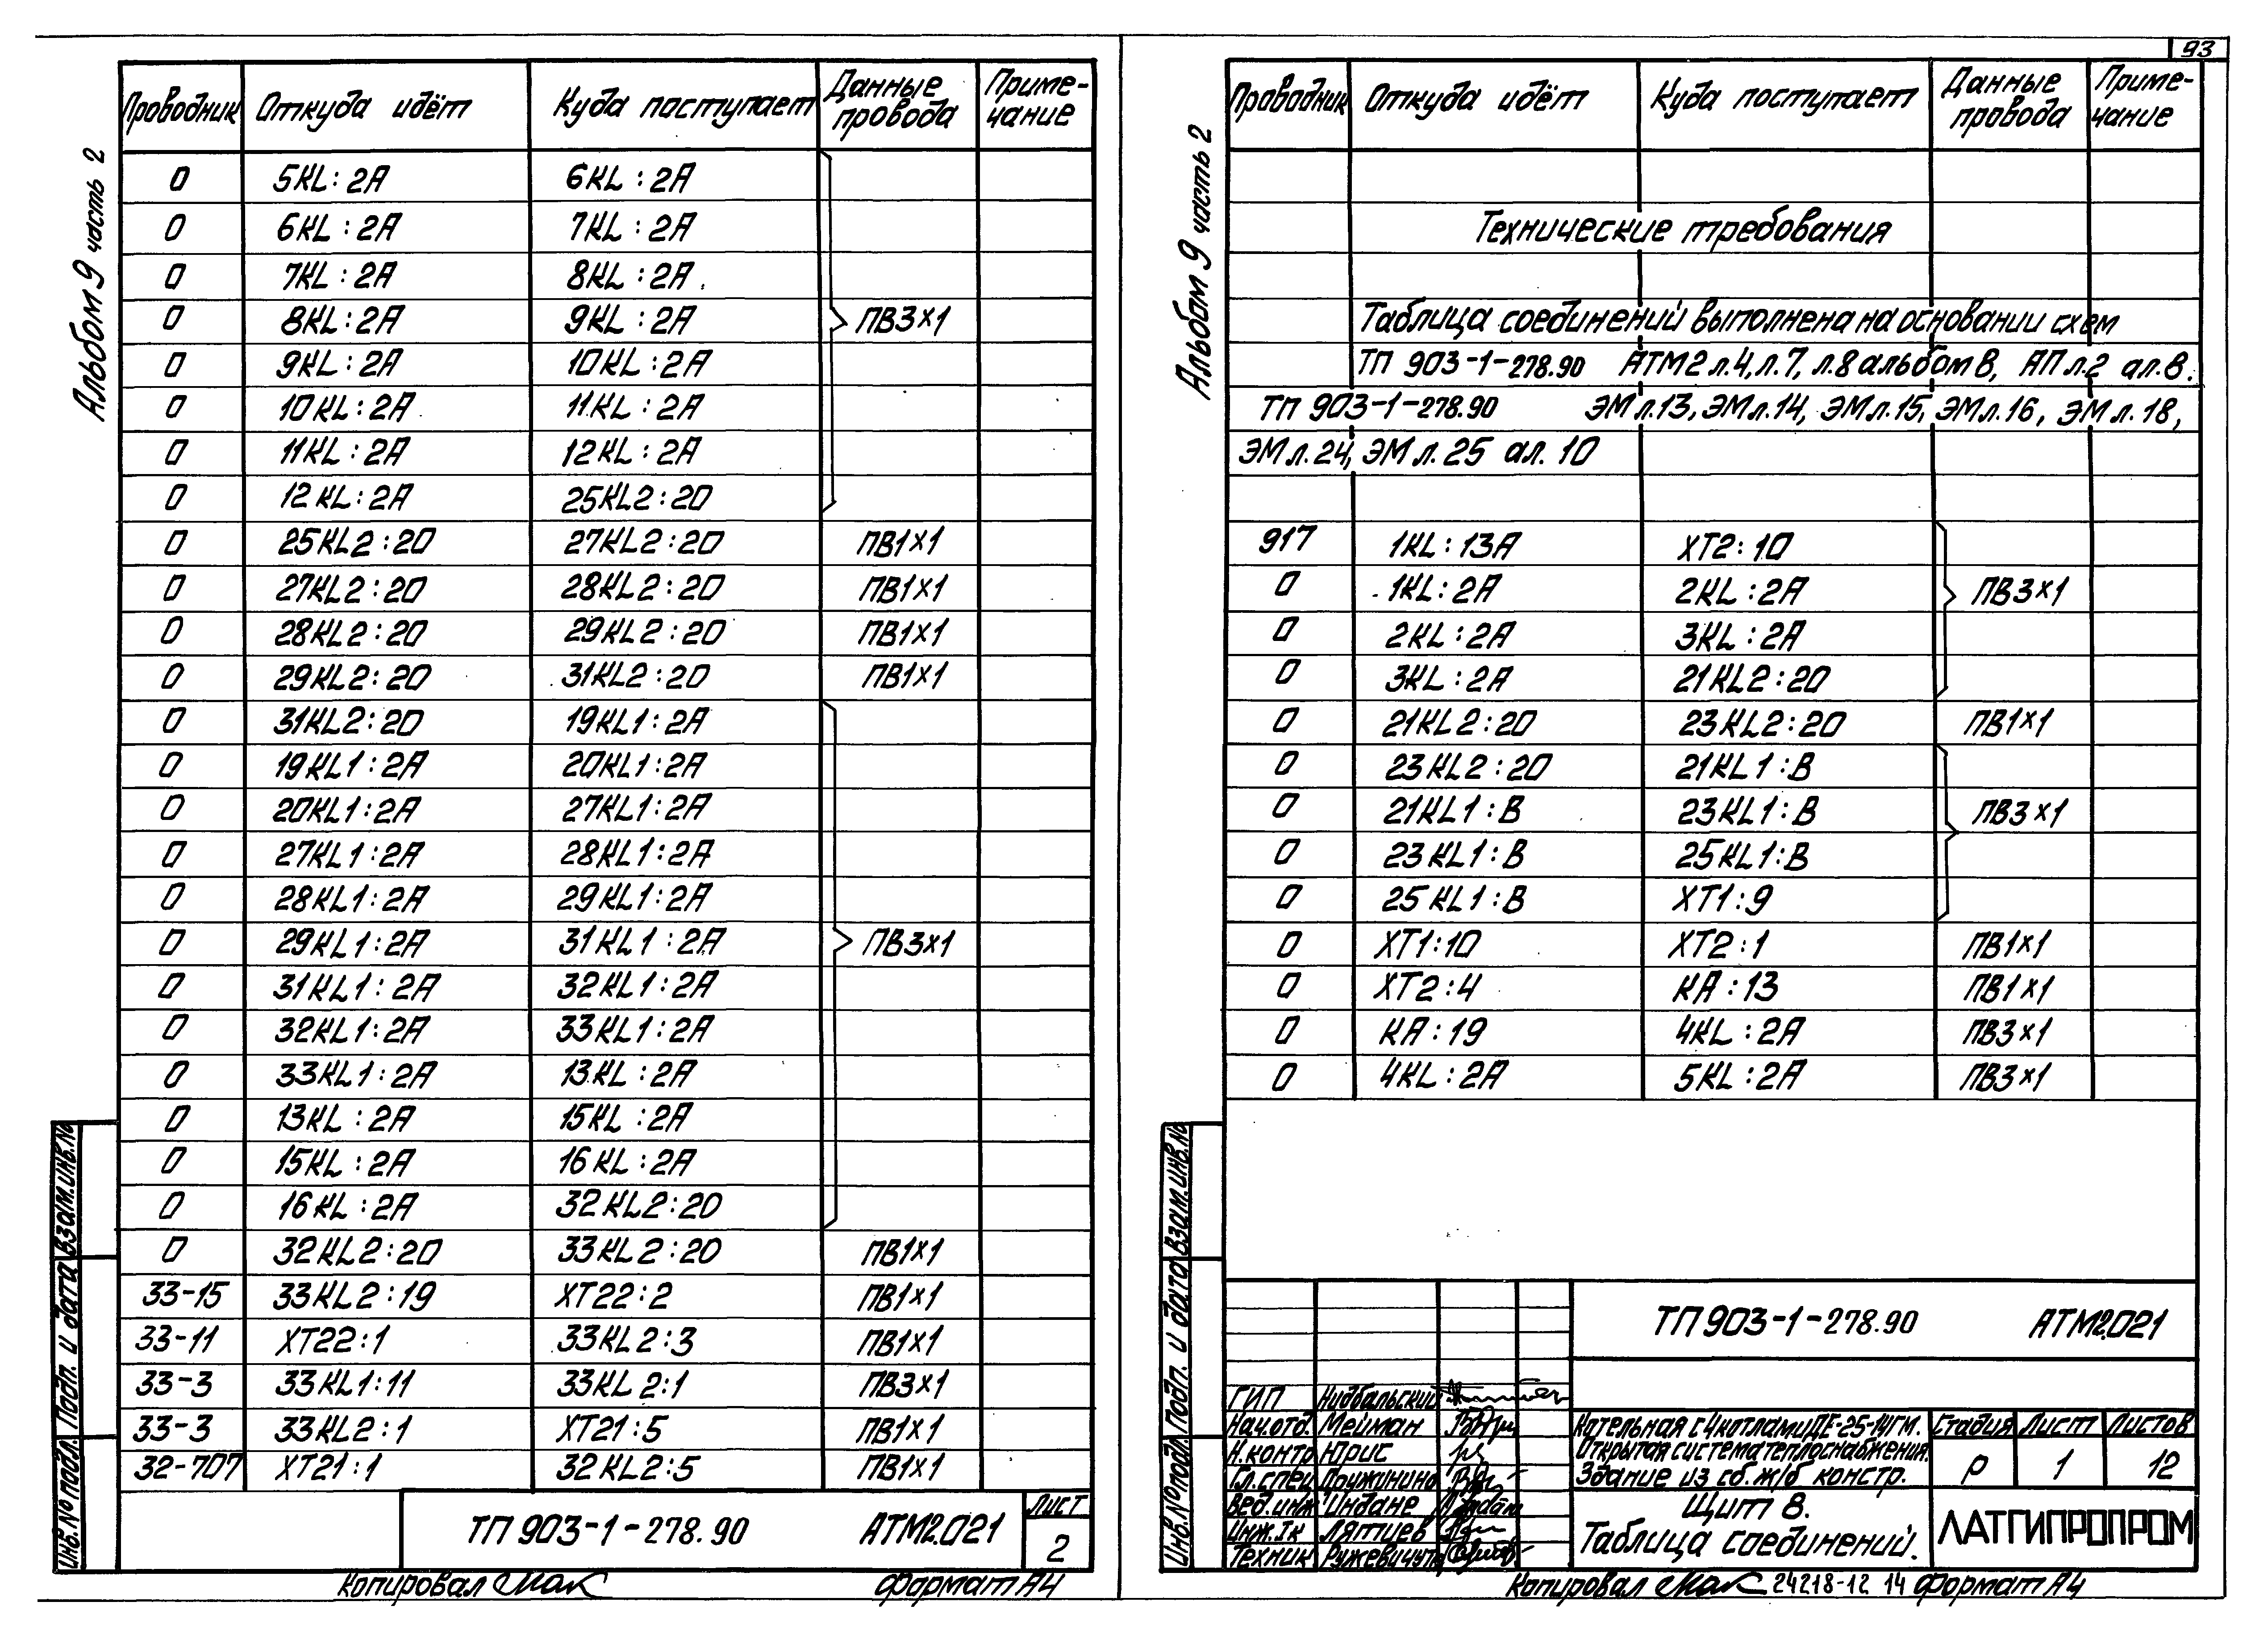 93
Альбом 9 часть 2
Проводник Откуда идёт Куда поступает Данные провода Приме-чание
0 5KL:2A 6KL:2A
0 6KL:2A 7KL:2A
0 7KL:2A 8KL:2A
0 8KL:2A 9KL:2A ПВ3×1
0 9KL:2A 10KL:2A
0 10KL:2A 11KL:2A
0 11KL:2A 12KL:2A
0 12KL:2A 25KL2:20
0 25KL2:20 27KL2:20 ПВ1×1
0 27KL2:20 28KL2:20 ПВ1×1
0 28KL2:20 29KL2:20 ПВ1×1
0 29KL2:20 31KL2:20 ПВ1×1
0 31KL2:20 19KL1:2A
0 19KL1:2A 20KL1:2A
0 20KL1:2A 27KL1:2A
0 27KL1:2A 28KL1:2A
0 28KL1:2A 29KL1:2A
0 29KL1:2A 31KL1:2A ПВ3×1
0 31KL1:2A 32KL1:2A
0 32KL1:2A 33KL1:2A
0 33KL1:2A 13KL:2A
0 13KL:2A 15KL:2A
0 15KL:2A 16KL:2A
0 16KL:2A 32KL2:20
0 32KL2:20 33KL2:20 ПВ1×1
33-15 33KL2:19 XT22:2 ПВ1×1
33-11 XT22:1 33KL2:3 ПВ1×1
33-3 33KL1:11 33KL2:1 ПВ3×1
33-3 33KL2:1 XT21:5 ПВ1×1
32-707 XT21:1 32KL2:5 ПВ1×1
ТП 903-1-278.90 АТМ2.021
Лист
2
Инв.№ подл. Подп. и дата Взам.инв.№
Копировал Формат А4
Альбом 9 часть 2
Проводник Откуда идёт Куда поступает Данные провода Приме-чание
Технические требования
Таблица соединений выполнена на основании схем
ТП 903-1-278.90 АТМ2 л.4, л.7, л.8 альбом 8, АП л.2 ал.8.
ТП 903-1-278.90 ЭМ л.13, ЭМ л.14, ЭМ л.15, ЭМ л.16, ЭМ л.18,
ЭМ л.24, ЭМ л.25 ал. 10
917 1KL:13A XT2:10
0 1KL:2A 2KL:2A ПВ3×1
0 2KL:2A 3KL:2A
0 3KL:2A 21KL2:20
0 21KL2:20 23KL2:20 ПВ1×1
0 23KL2:20 21KL1:B
0 21KL1:B 23KL1:B ПВ3×1
0 23KL1:B 25KL1:B
0 25KL1:B XT1:9
0 XT1:10 XT2:1 ПВ1×1
0 XT2:4 KA:13 ПВ1×1
0 KA:19 4KL:2A ПВ3×1
0 4KL:2A 5KL:2A ПВ3×1
ТП 903-1-278.90 АТМ2.021
ГИП Нидбальский
Нач.отд. Мейман
Н.контр Юрис
Гл.спец Дружинина
Вед.инж Индане
Инж.Iк Лятиев
Техник
Котельная с 4 котлами ДЕ-25-14ГМ.
Открытая система теплоснабжения.
Здание из сб. ж/б констр.
Стадия Лист Листов
Р 1 12
Щит 8.
Таблица соединений.
ЛАТГИПРОПРОМ
Инв.№ подл. Подп. и дата Взам.инв.№
Копировал 24218-12 14 Формат А4